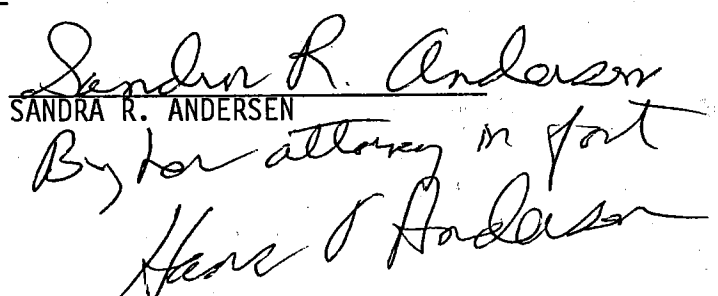 Sandra R. Andersen
SANDRA R. ANDERSEN
By her attorney in fact
Hans Andersen